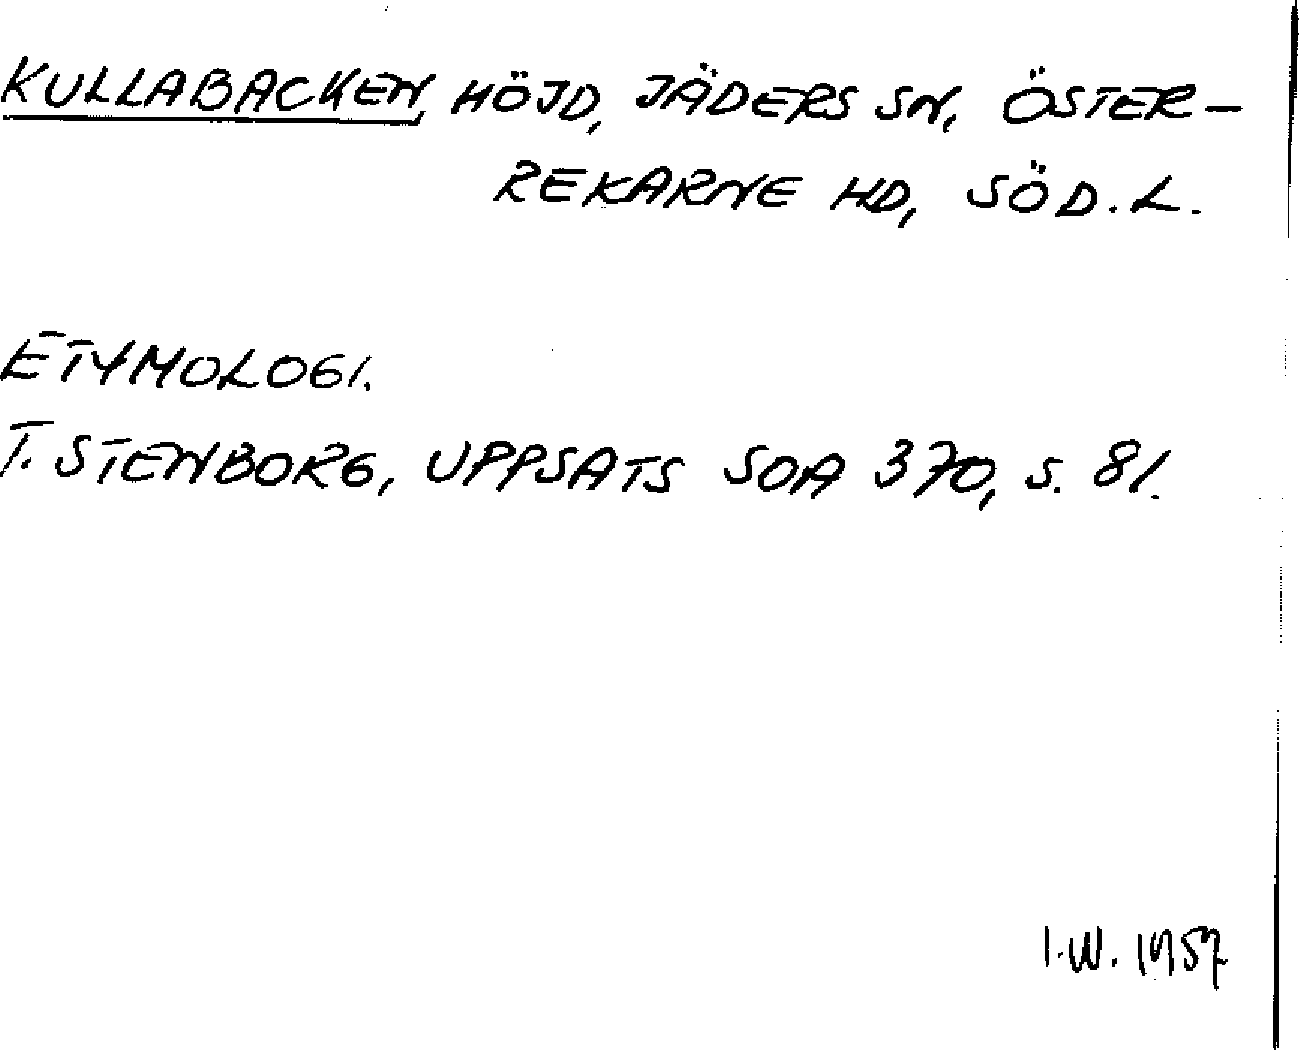 KULLABACKEN, HÖJD, JÄDERS SN, ÖSTER-
REKARNE HD, SÖD.L.
ETYMOLOGI.
T. STENBORG, UPPSATS SOA 370, S. 81.
I.W. 1957